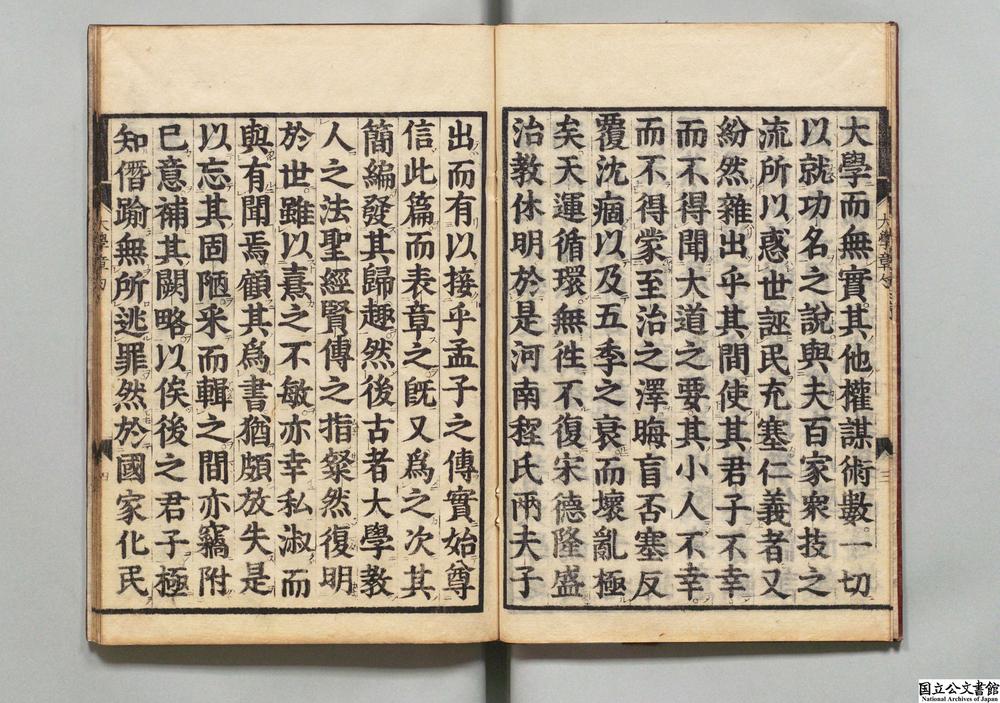 大學而無實其他權謀術數一切
以就功名之說與夫百家衆技之
流所以惑世誣民充塞仁義者又
紛然雜出乎其間使其君子不幸
而不得聞大道之要其小人不幸
而不得蒙至治之澤晦盲否塞反
覆沈痼以及五季之衰而壞亂極
矣天運循環無徃不復宋德隆盛
治教休明於是河南程氏兩夫子
出而有以接乎孟子之傳實始尊
信此篇而表章之旣又爲之次其
簡編發其歸趣然後古者大學教
人之法聖經賢傳之指粲然復明
於世雖以熹之不敏亦幸私淑而
與有聞焉顧其爲書猶頗放失是
以忘其固陋采而輯之間亦竊附
己意補其闕略以俟後之君子極
知僭踰無所逃罪然於國家化民
大學章句
三
大學章句
四
国立公文書館
National Archives of Japan